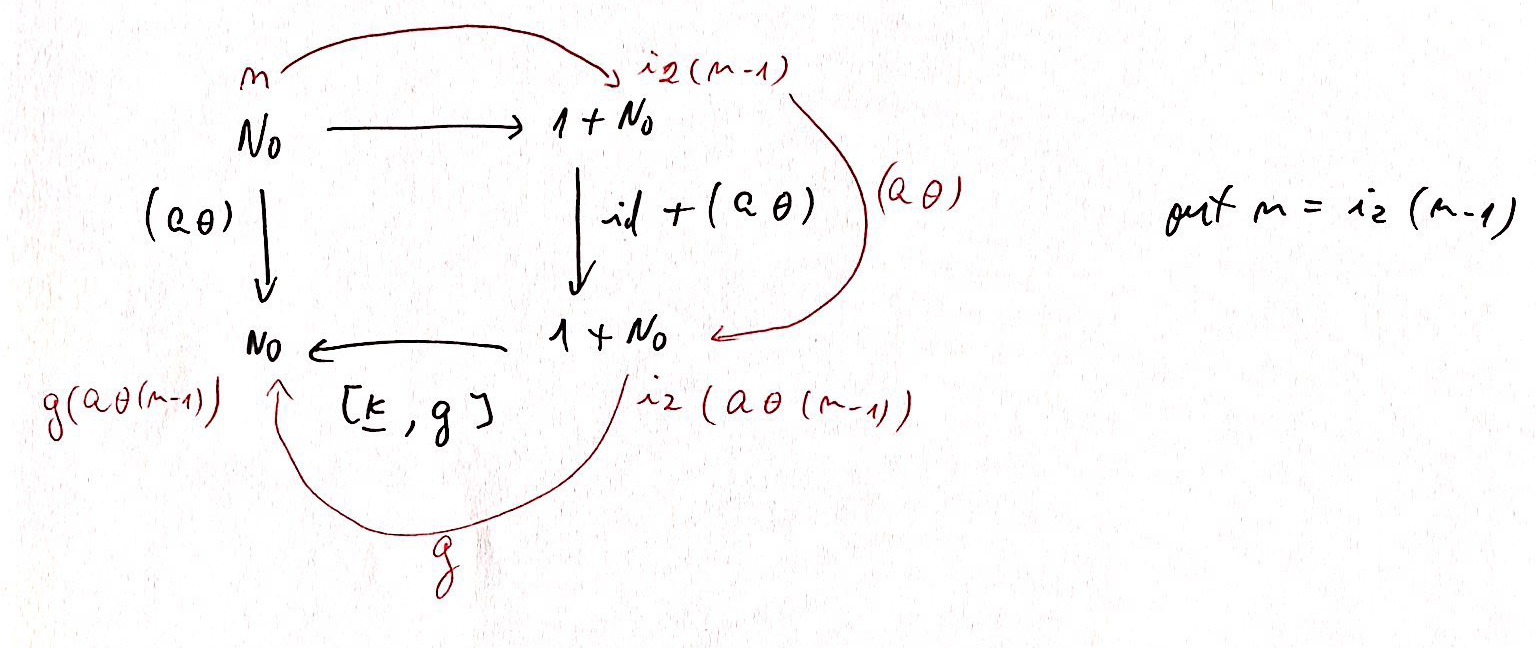 n i2(n-1)
N0 1 + N0
(a θ) id + (a θ) (a θ) out n = i2 (n-1)
N0 1 + N0
g(a θ (n-1)) [k, g] i2 (a θ (n-1))
g